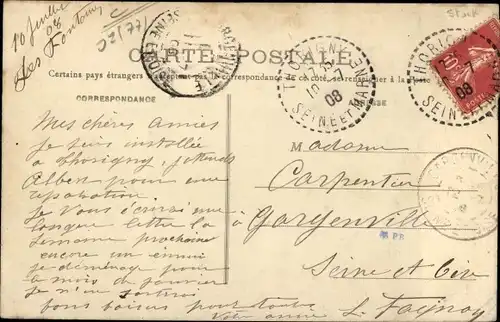 10 Juillet 08
Les Fontaines
CARTE POSTALE
Certains pays étrangers n'acceptent pas la correspondance de ce côté, se renseigner à la Poste
CORRESPONDANCE
ADRESSE
THORIGNY
10 -7
08
SEINE ET MARNE
THORIGNY
-7
08
SEINE ET MARNE
Mes chères Amies
Je suis installée
à Thorigny, j'attends
Albert pour une
réparation.
Je vous écrirai une
longue lettre la
semaine prochaine
encore un ennui
je déménage pour
à mois de janvier
Je n'en
bons baisers pour toutes
Votre amie L. Fagnoy
Madame
Carpentier
à Gargenville
Seine et Oise
PR